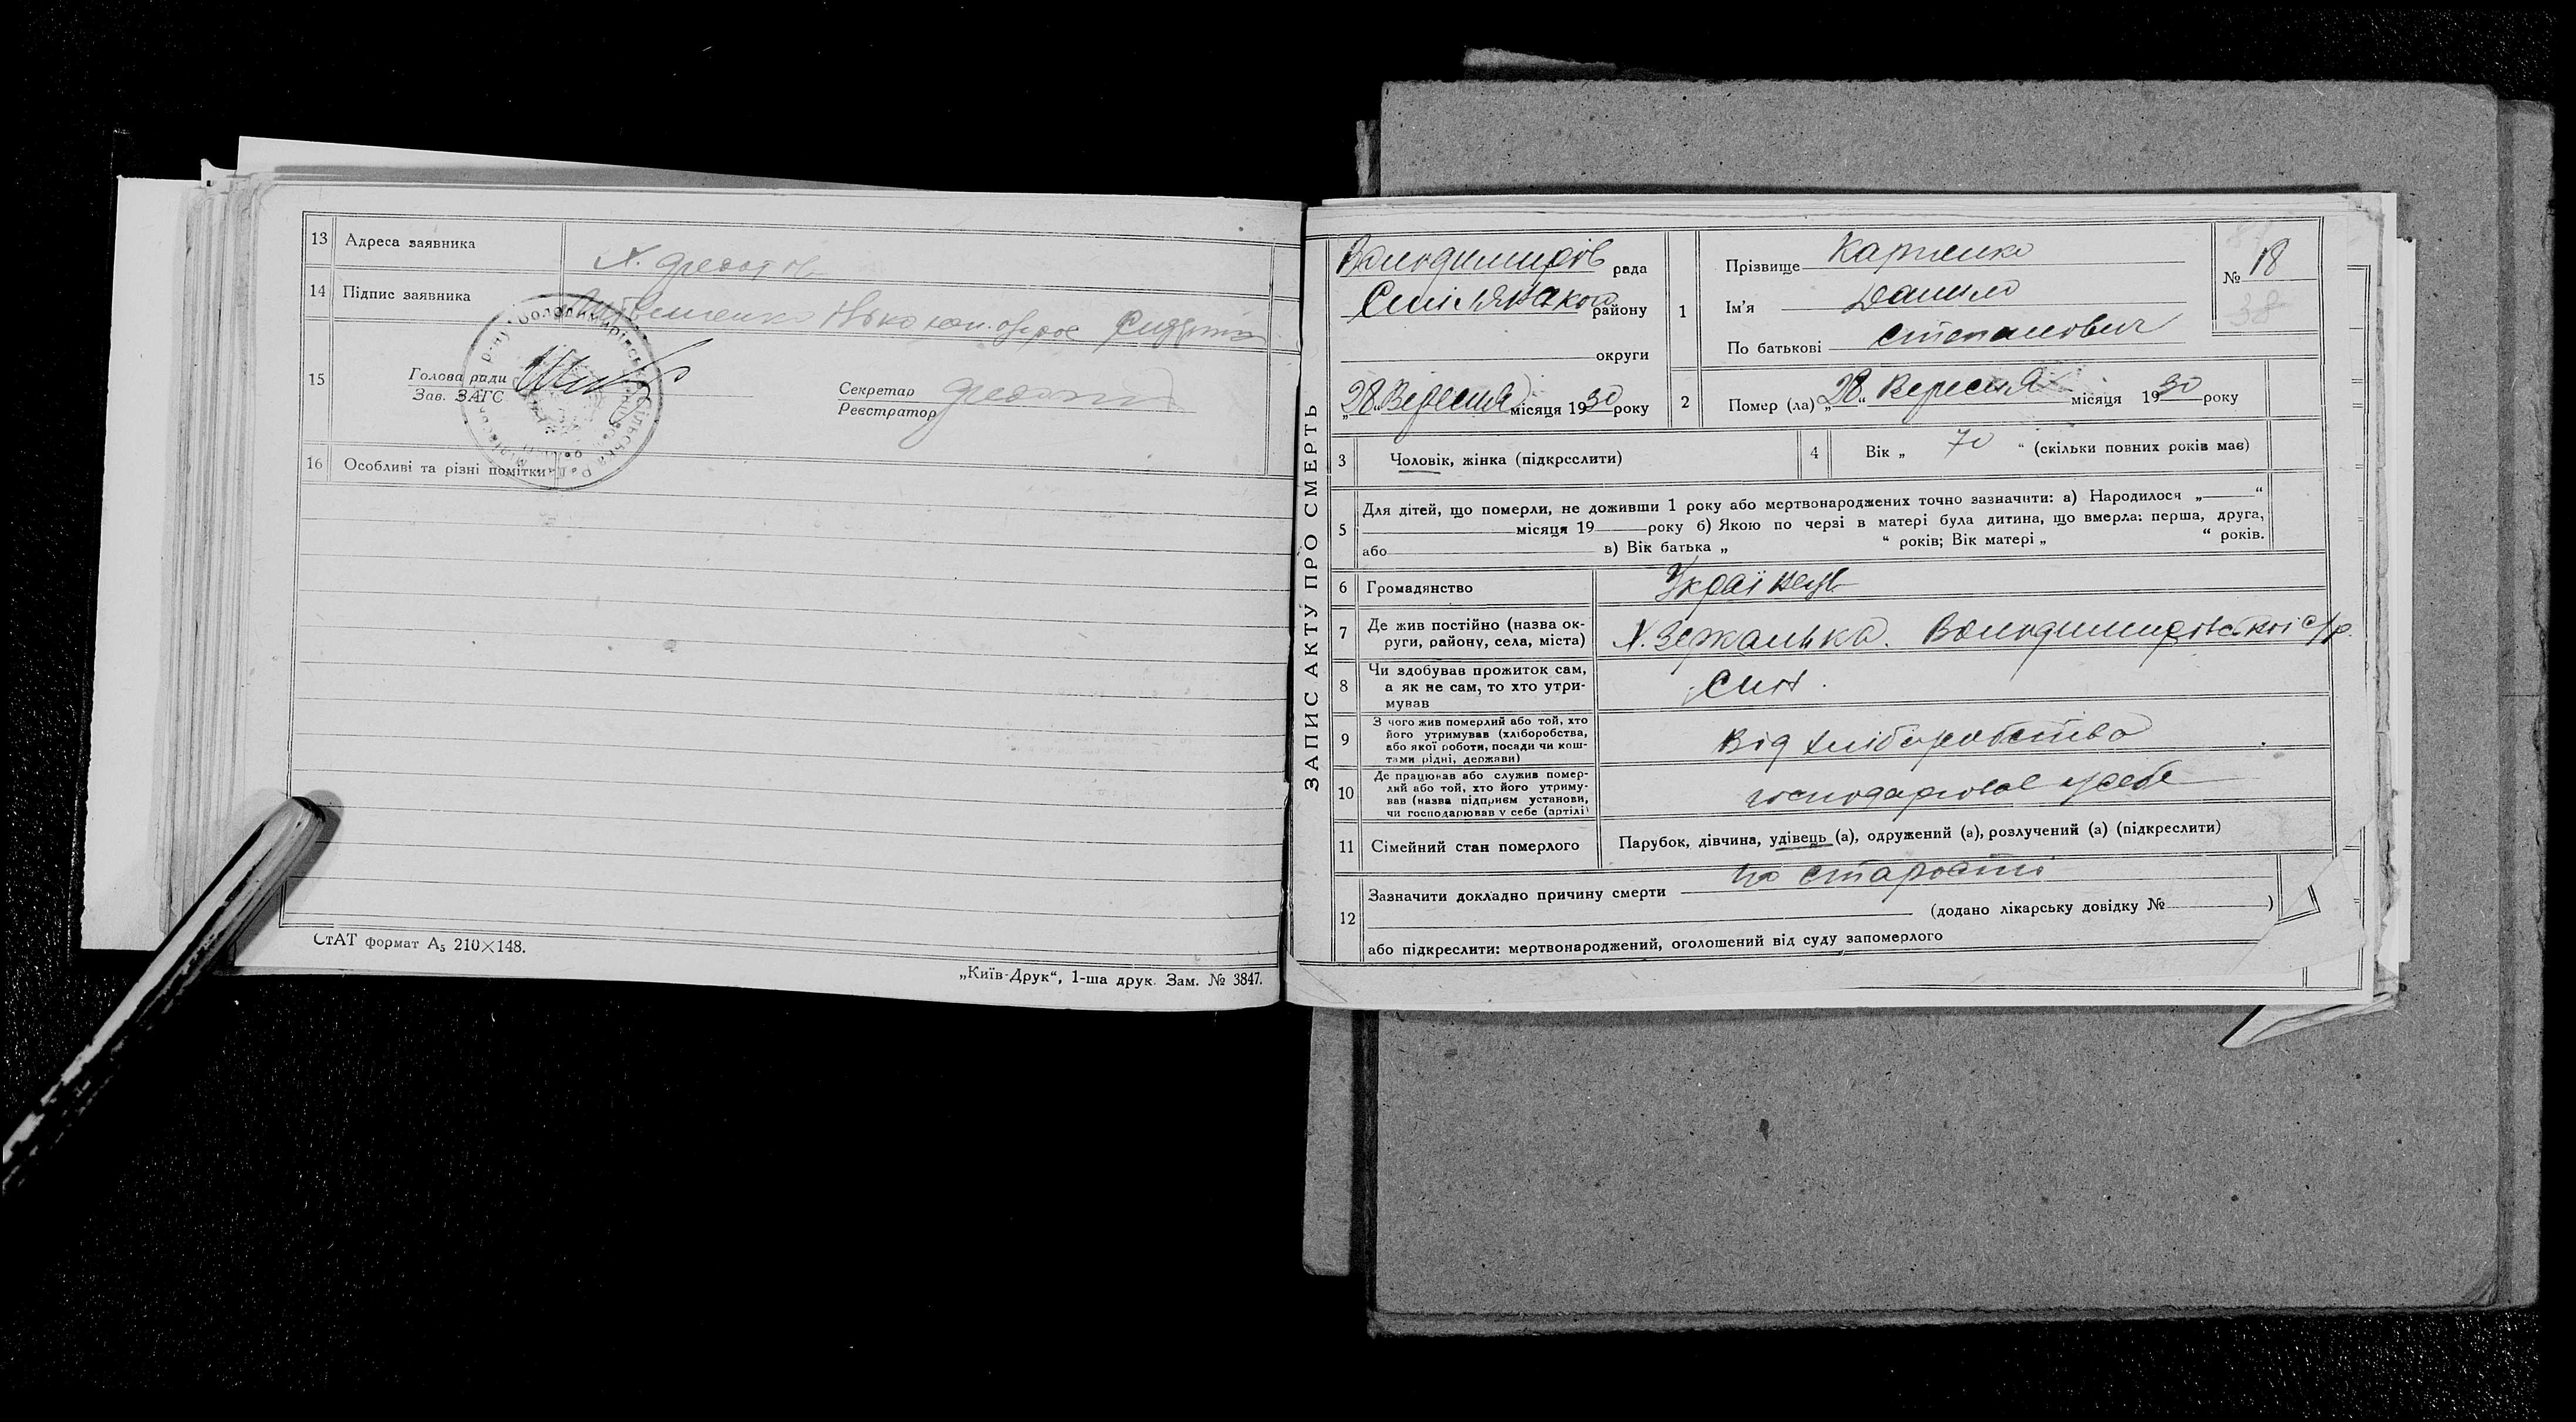 13 Адреса заявника
14 Підпис заявника
15 Голова ради
Зав. ЗАГС
Секретар
Реєстратор
16 Особливі та різні помітки
СтАТ формат А₅ 210×148.
„Київ-Друк“, 1-ша друк. Зам. № 3847.
ЗАПИС АКТУ ПРО СМЕРТЬ
Володимирів рада
району
округи
„28“ Вересня місяця 1930 року
1 Прізвище Карпенко
Ім'я Данило
По батькові Степанович
№ 18
38
2 Помер (ла) „28“ Вересня місяця 1930 року
3 Чоловік, жінка (підкреслити)
4 Вік „ 70 “ (скільки повних років має)
5 Для дітей, що померли, не доживши 1 року або мертвонароджених точно зазначити: а) Народилося „ “
місяця 19 року б) Якою по черзі в матері була дитина, що вмерла: перша, друга,
або в) Вік батька „ “ років; Вік матері „ “ років.
6 Громадянство Українець
7 Де жив постійно (назва ок-
руги, району, села, міста) Х. Зержанька. Володимирівської с/р.
8 Чи здобував прожиток сам,
а як не сам, то хто утри-
мував Син.
9 З чого жив померлий або той, хто
його утримував (хліборобства,
або якої роботи, посади чи кош-
тами рідні, держави) Від хліборобства
10 Де працював або служив помер-
лий або той, хто його утриму-
вав (назва підприєм установи,
чи господарював у себе (артілі) господарював у себе
11 Сімейний стан померлого Парубок, дівчина, удівець (а), одружений (а), розлучений (а) (підкреслити)
12 Зазначити докладно причину смерти по старости
(додано лікарську довідку № )
або підкреслити: мертвонароджений, оголошений від суду запомерлого